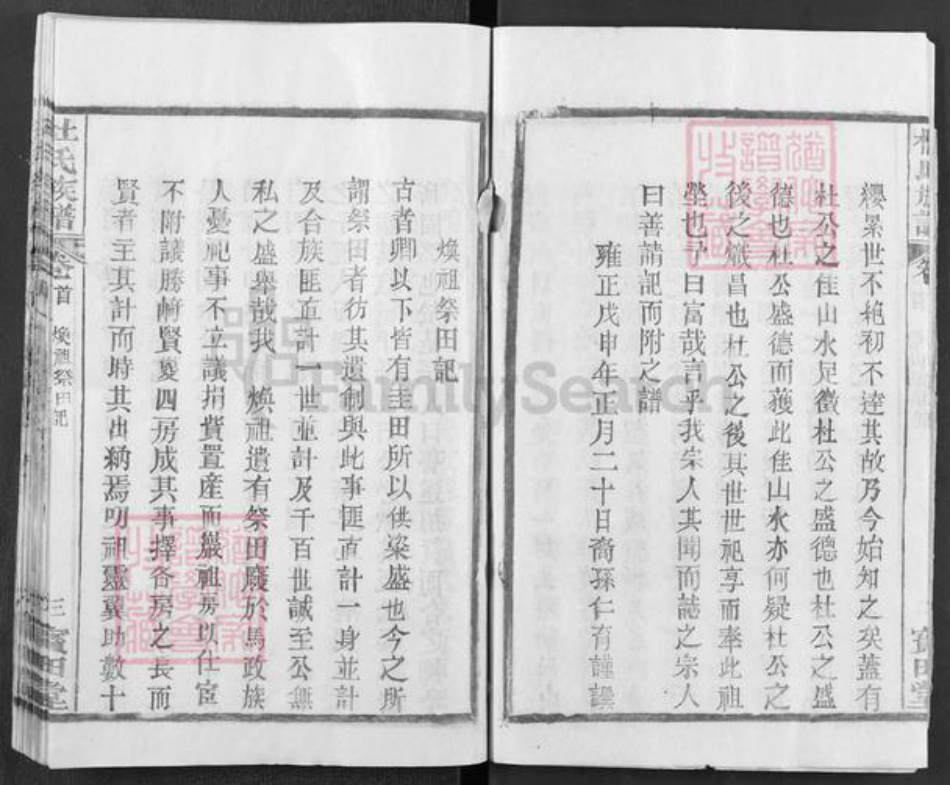 杜氏族譜 卷首
寶田堂
纓累世不絕初不達其故乃今始知之矣蓋有
杜公之佳山水足徵杜公之盛德也杜公之盛
德也杜公盛德而獲此佳山水亦何疑杜公之
後之熾昌也杜公之後其世世祀享而奉此祖
塋也予曰富哉言乎我宗人其聞而誌之宗人
曰善請記而附之譜
雍正戊申年正月二十日裔孫仁有謹譔
煥祖祭田記
古者卿以下皆有圭田所以供粢盛也今之所
謂祭田者彷其遺創與此事匪直計一身並計
及合族匪直計一世並計及千百世誠至公無
私之盛舉哉我 煥祖遺有祭田廢於馬政族
人憂祀事不立議捐貲置產而巖祉房以仕宦
不附議勝嶄賢夔四房成其事擇各房之長而
賢者主其計而時其出納焉叨祖靈翼助數十
杜氏族譜 卷首 煥祖祭田記 三 寶田堂
FamilySearch